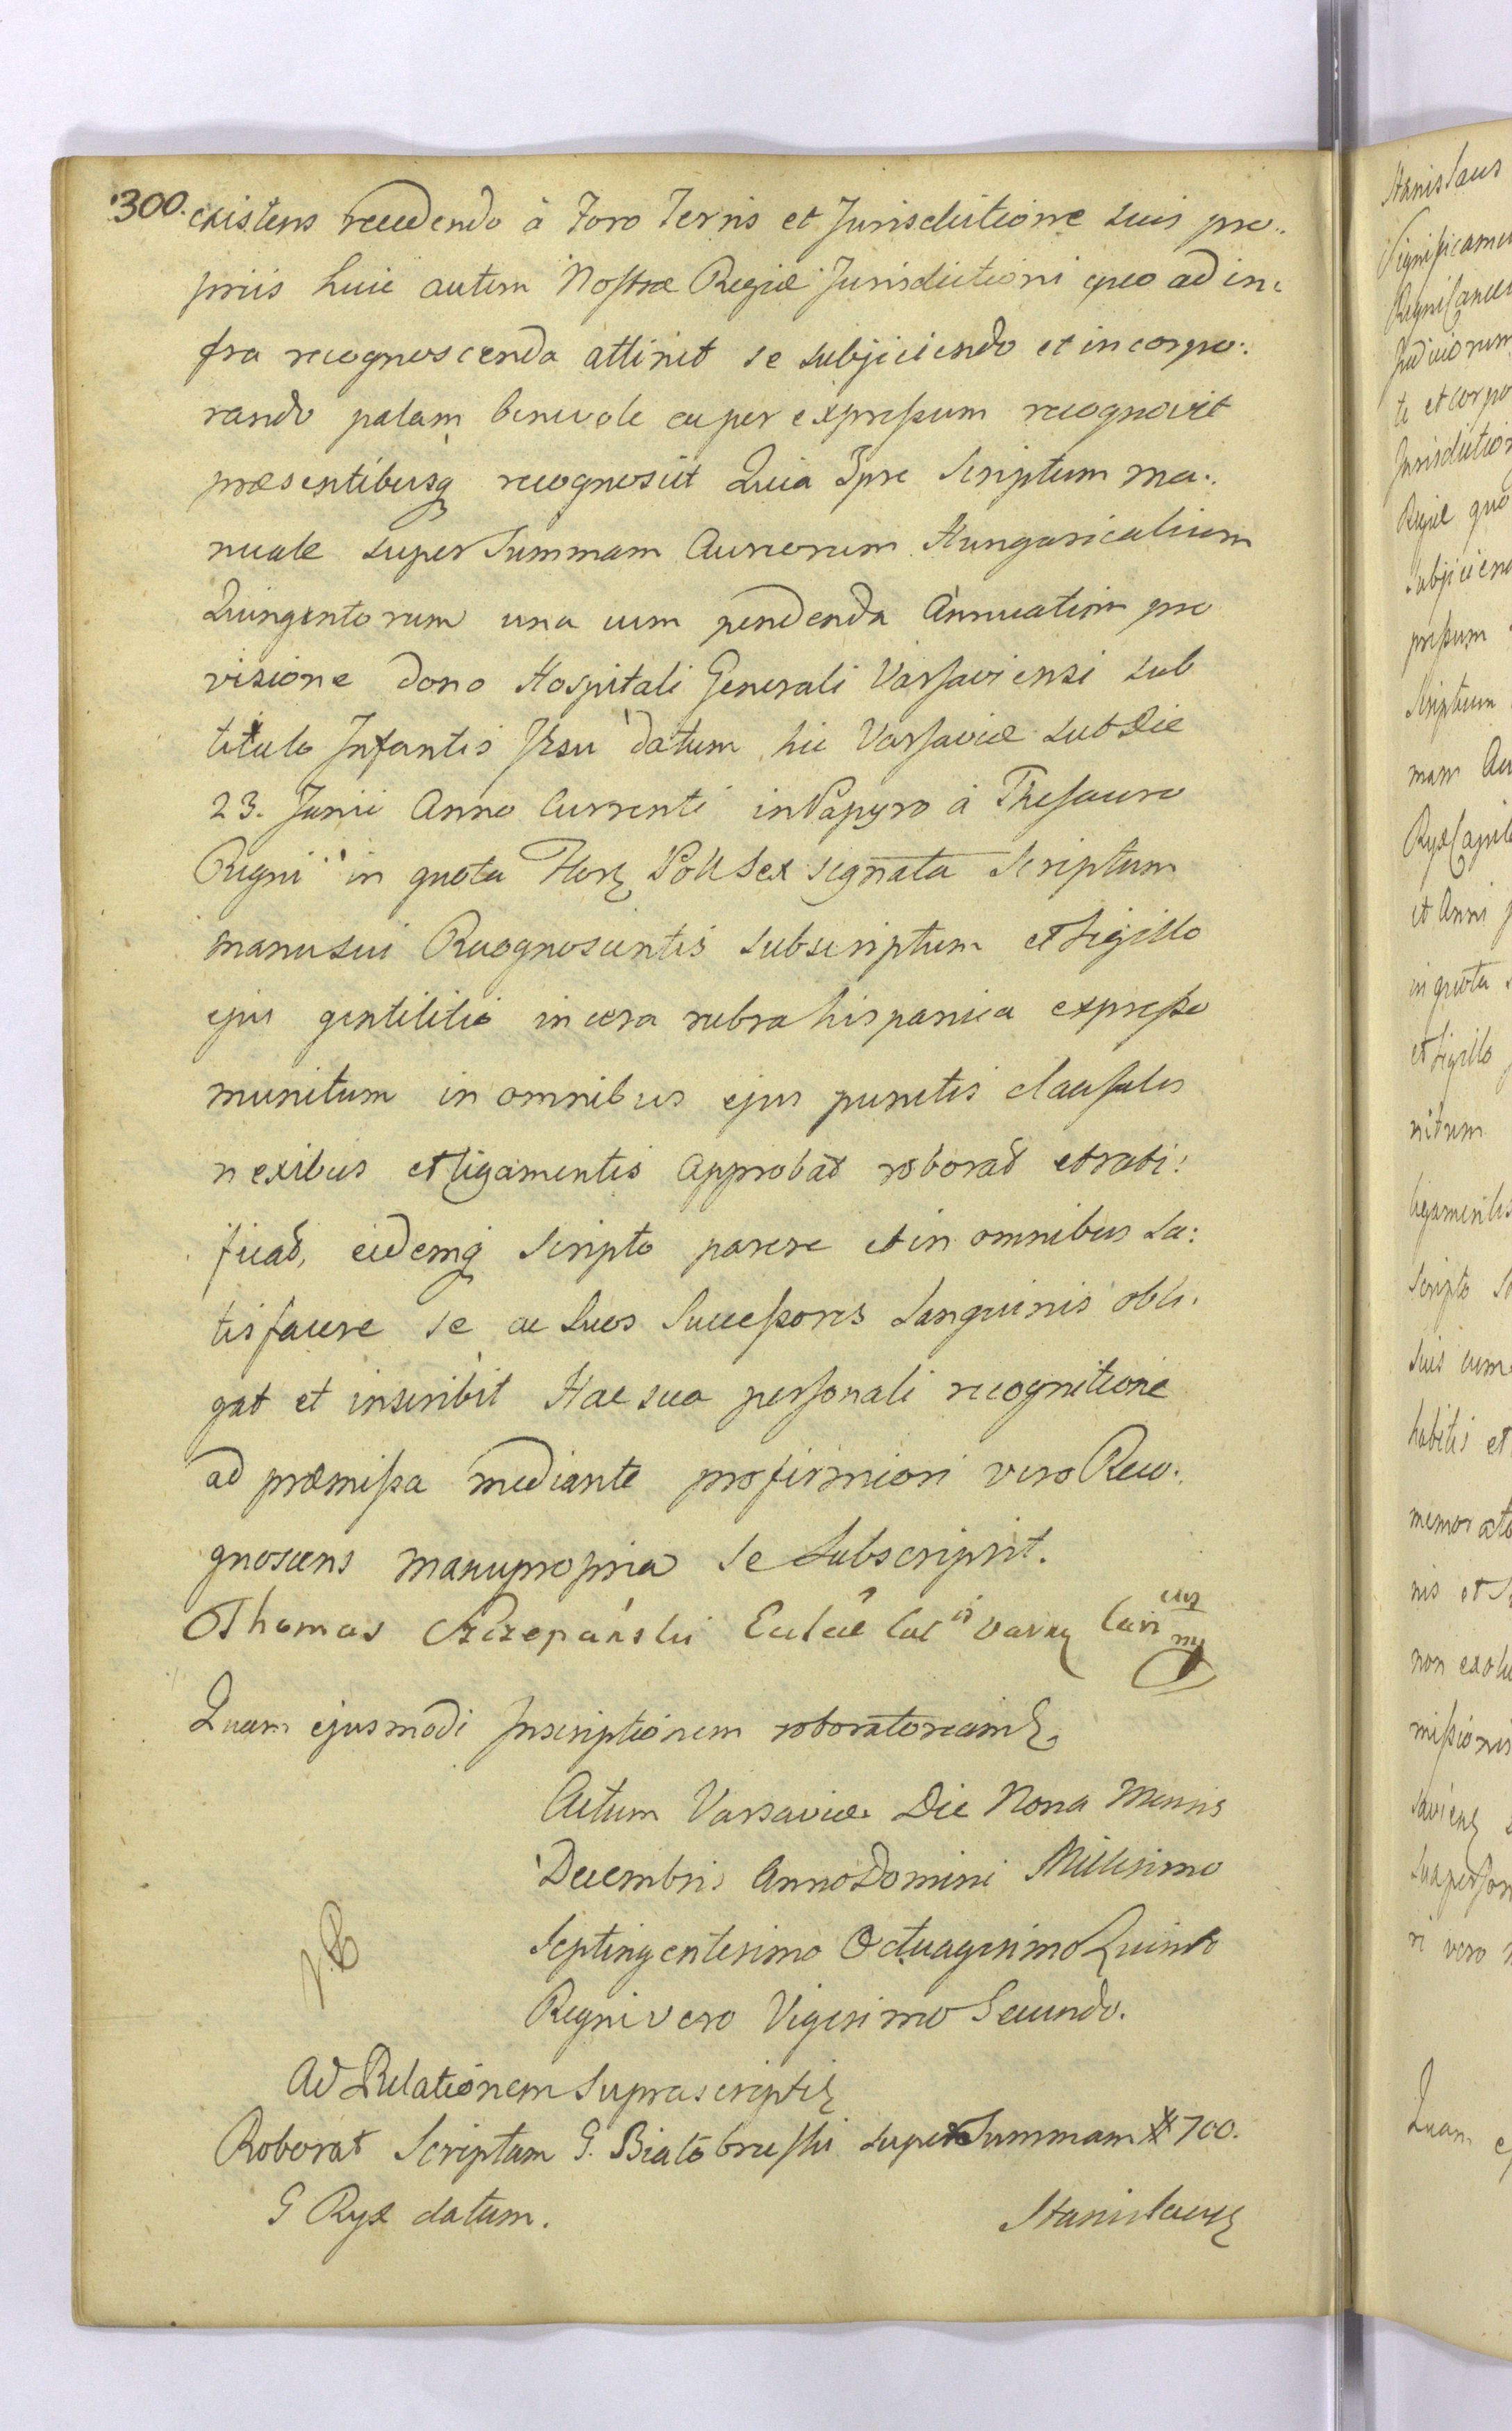 300. existens recedendo à Foro Terris et Jurisdictione suis pro:
priis huic autem Nostræ Regiæ Jurisdictioni quo ad in:
fra recognoscenda attinet se subjiciendo et incorpo:
rando palam benevole ac per expressum recognovit
præsentibusq recognoscit Quia Ipse Scriptum ma:
nuale super Summam Aureorum Hungaricalium
Quingentorum una cum pendenda Annuatim pro
visione dono Hospitali Generali Varsaviensi sub
titulo Infantis Jesu datum hic Varsaviæ sub Die
23. Junii Anno Currenti in Papyro à Thesauro
Regni in quota Flor Poll Sex signata Scriptum
manu sui Recognoscentis subscriptum et Sigillo
ejus gentilitio in cera rubra hispanica expresso
munitum in omnibus ejus punctis clausulis
nexibus et ligamentis approbat roborat et rati:
ficat, eidemq Scripto parere et in omnibus sa:
tisfacere se ac suos Successores Sanguinis obli:
gat et inscribit Hac sua personali recognitione
ad præmissa mediante pro firmiori vero Reco:
gnoscens manu propria se Subscripsit.
Thomas Szczepański
Quam ejusmodi Inscriptionem roboratoriam
Actum Varsaviæ Die Nona Mensis
Decembris Anno Domini Millesimo
Septingentesimo Octuagesimo Quinto
Regni vero Vigesimo Secundo.
Ad Relationem Suprascripti
Roborat Scriptum G. Białobrzeski super Summam # 700.
G Ryx datum.
Stanislaus
Stanislaus
Significamus
Regni Cancel
Judiciorum
te et corpo
Jurisdiction
Regiæ quo
subjiciend
pressum
Scriptum
mam Au
Ryx Capit
et Anni
in quota
et Sigillo
nitum
ligamentis
Scripto
suis cum
habitis et
memorato
nis et
non exolu
missionis
saviens
sua person
ri vero
Quam ej